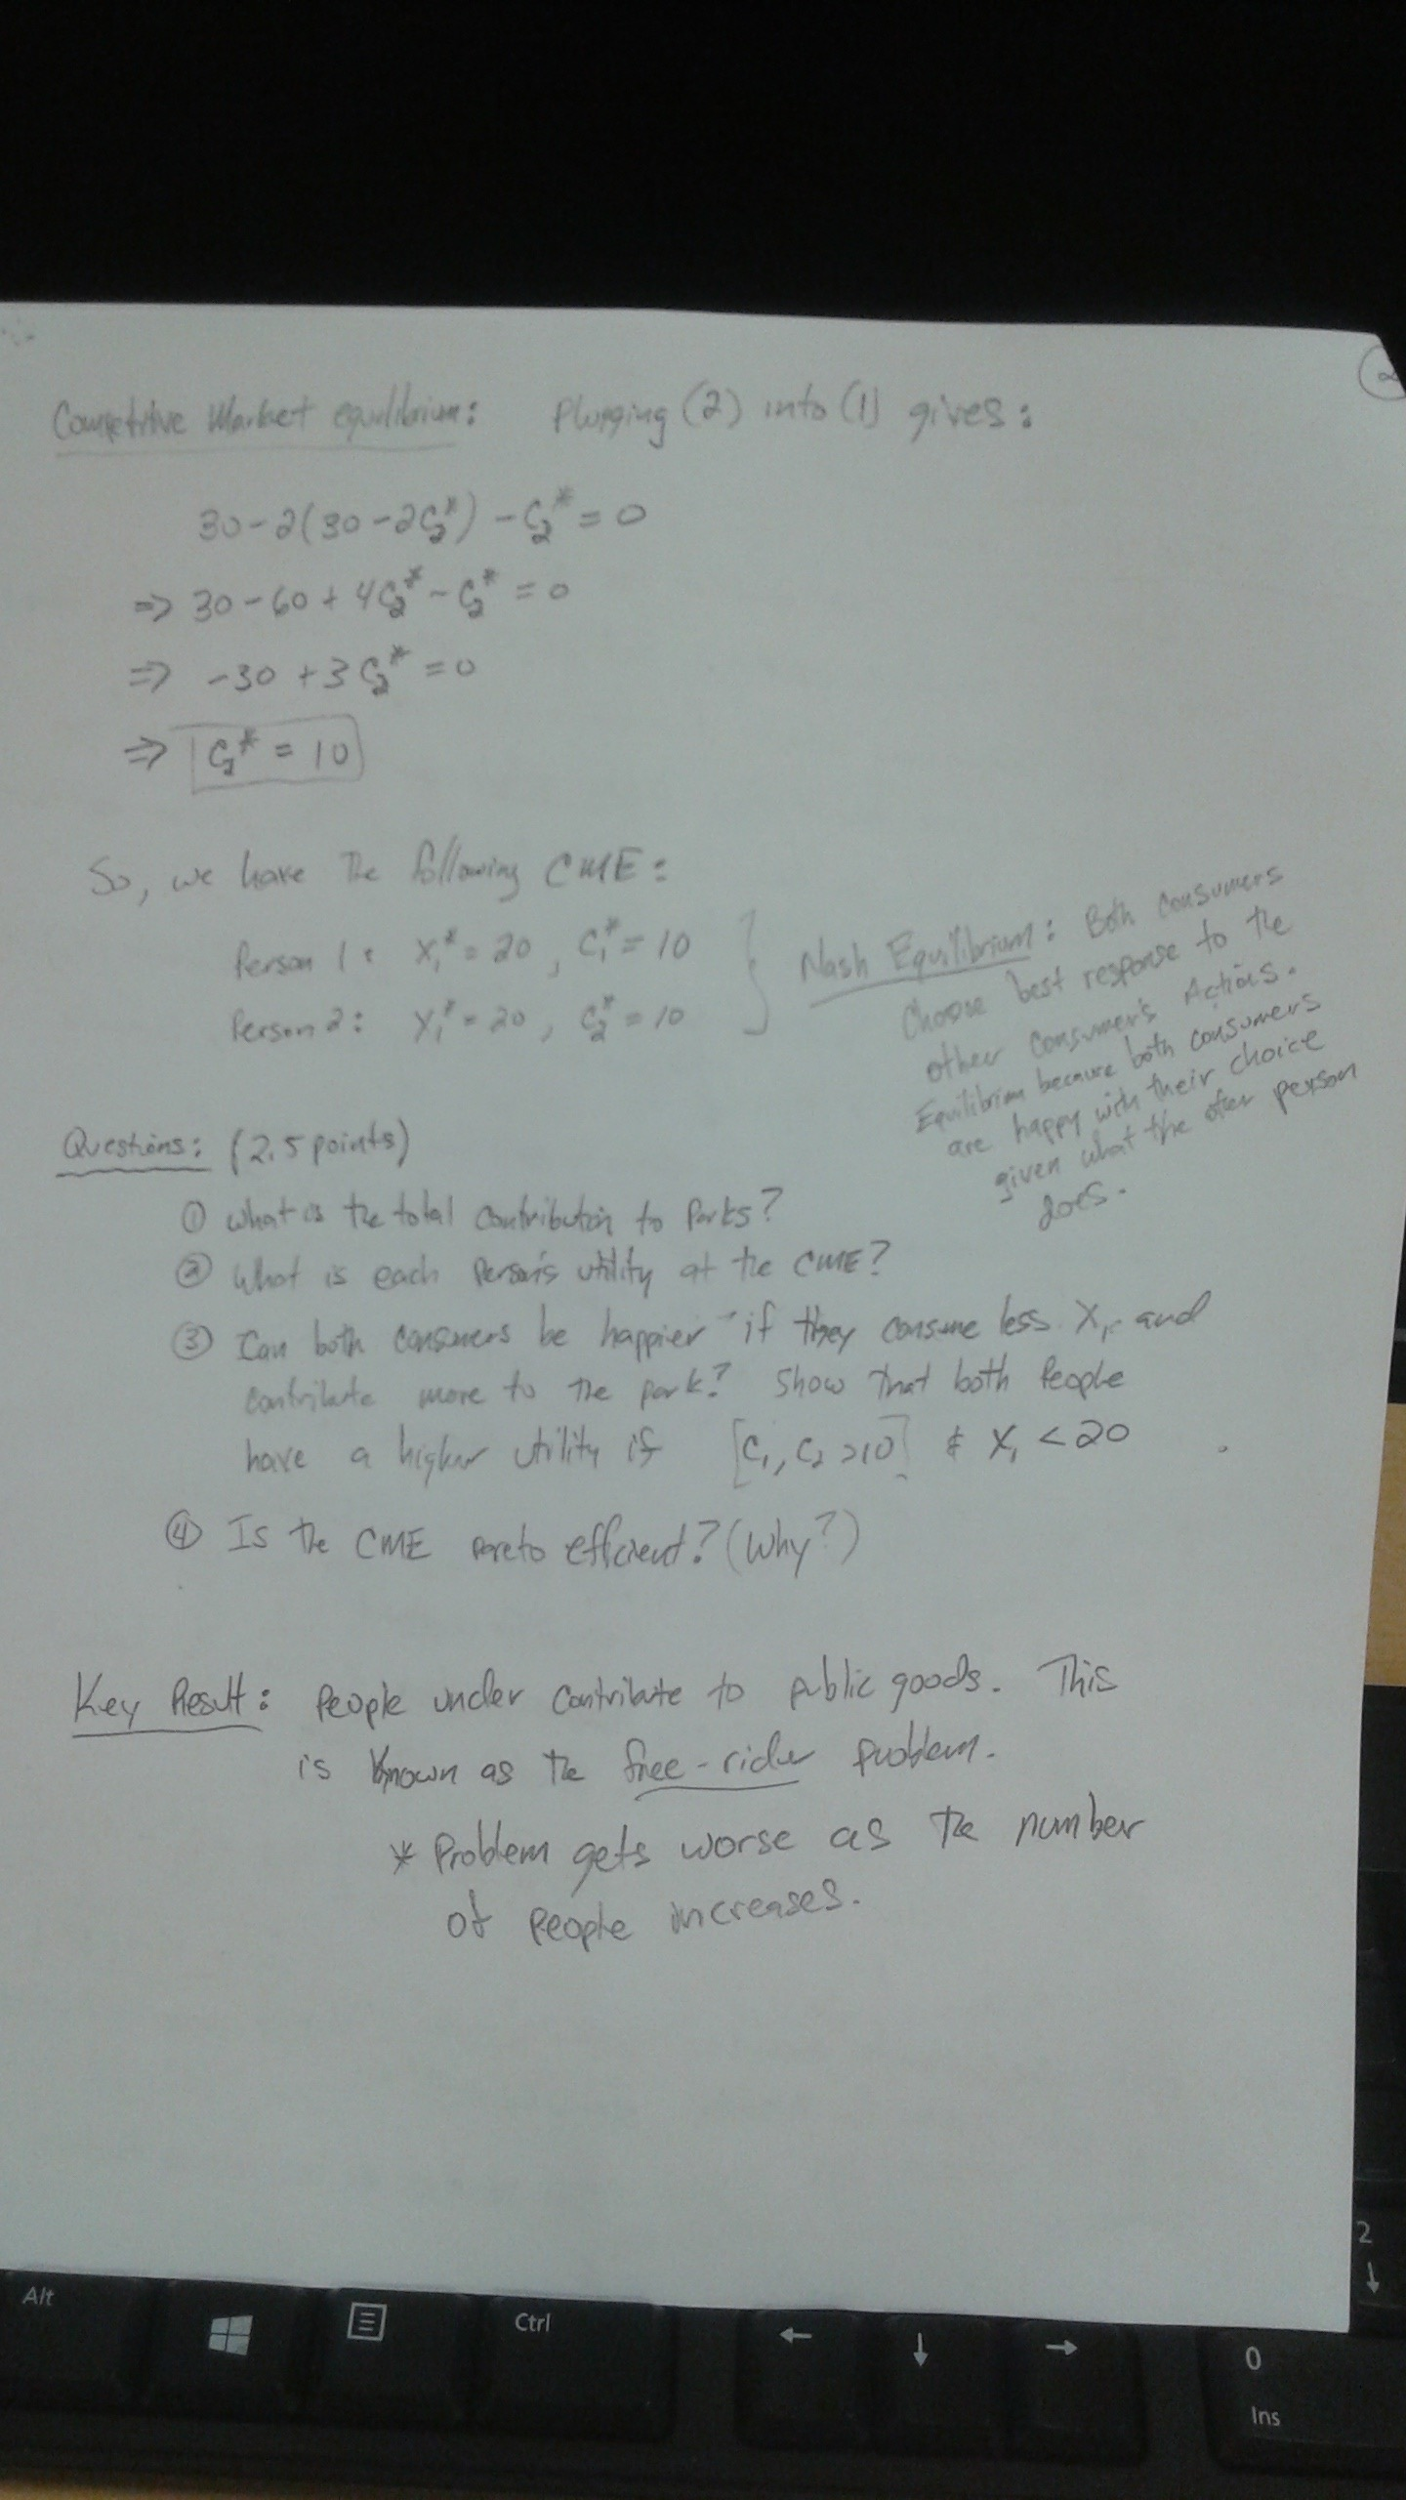 2
Competitive Market equilibrium: Plugging (2) into (1) gives:
30 - 2(30 - 2C₂*) - C₂* = 0
⇒ 30 - 60 + 4C₂* - C₂* = 0
⇒ -30 + 3C₂* = 0
⇒ C₂* = 10
So, we have the following CME:
Person 1: X₁* = 20, C₁* = 10
Person 2: Y₁* = 20, C₂* = 10
Nash Equilibrium: Both consumers
Choose best response to the
other consumer's Actions.
Equilibrium because both consumers
are happy with their choice
given what the other person
does.
Questions: (2.5 points)
① what is the total contribution to Parks?
② what is each person's utility at the CME?
③ Can both consumers be happier if they consume less X₁ and
contribute more to the park? Show that both People
have a higher utility if [C₁, C₂ > 10] & X₁ < 20
④ Is the CME pareto efficient? (Why?)
Key Result: People under contribute to public goods. This
is known as the free-rider problem.
* Problem gets worse as the number
of People increases.
Alt
Ctrl
← ↓ →
2
↓
0
Ins